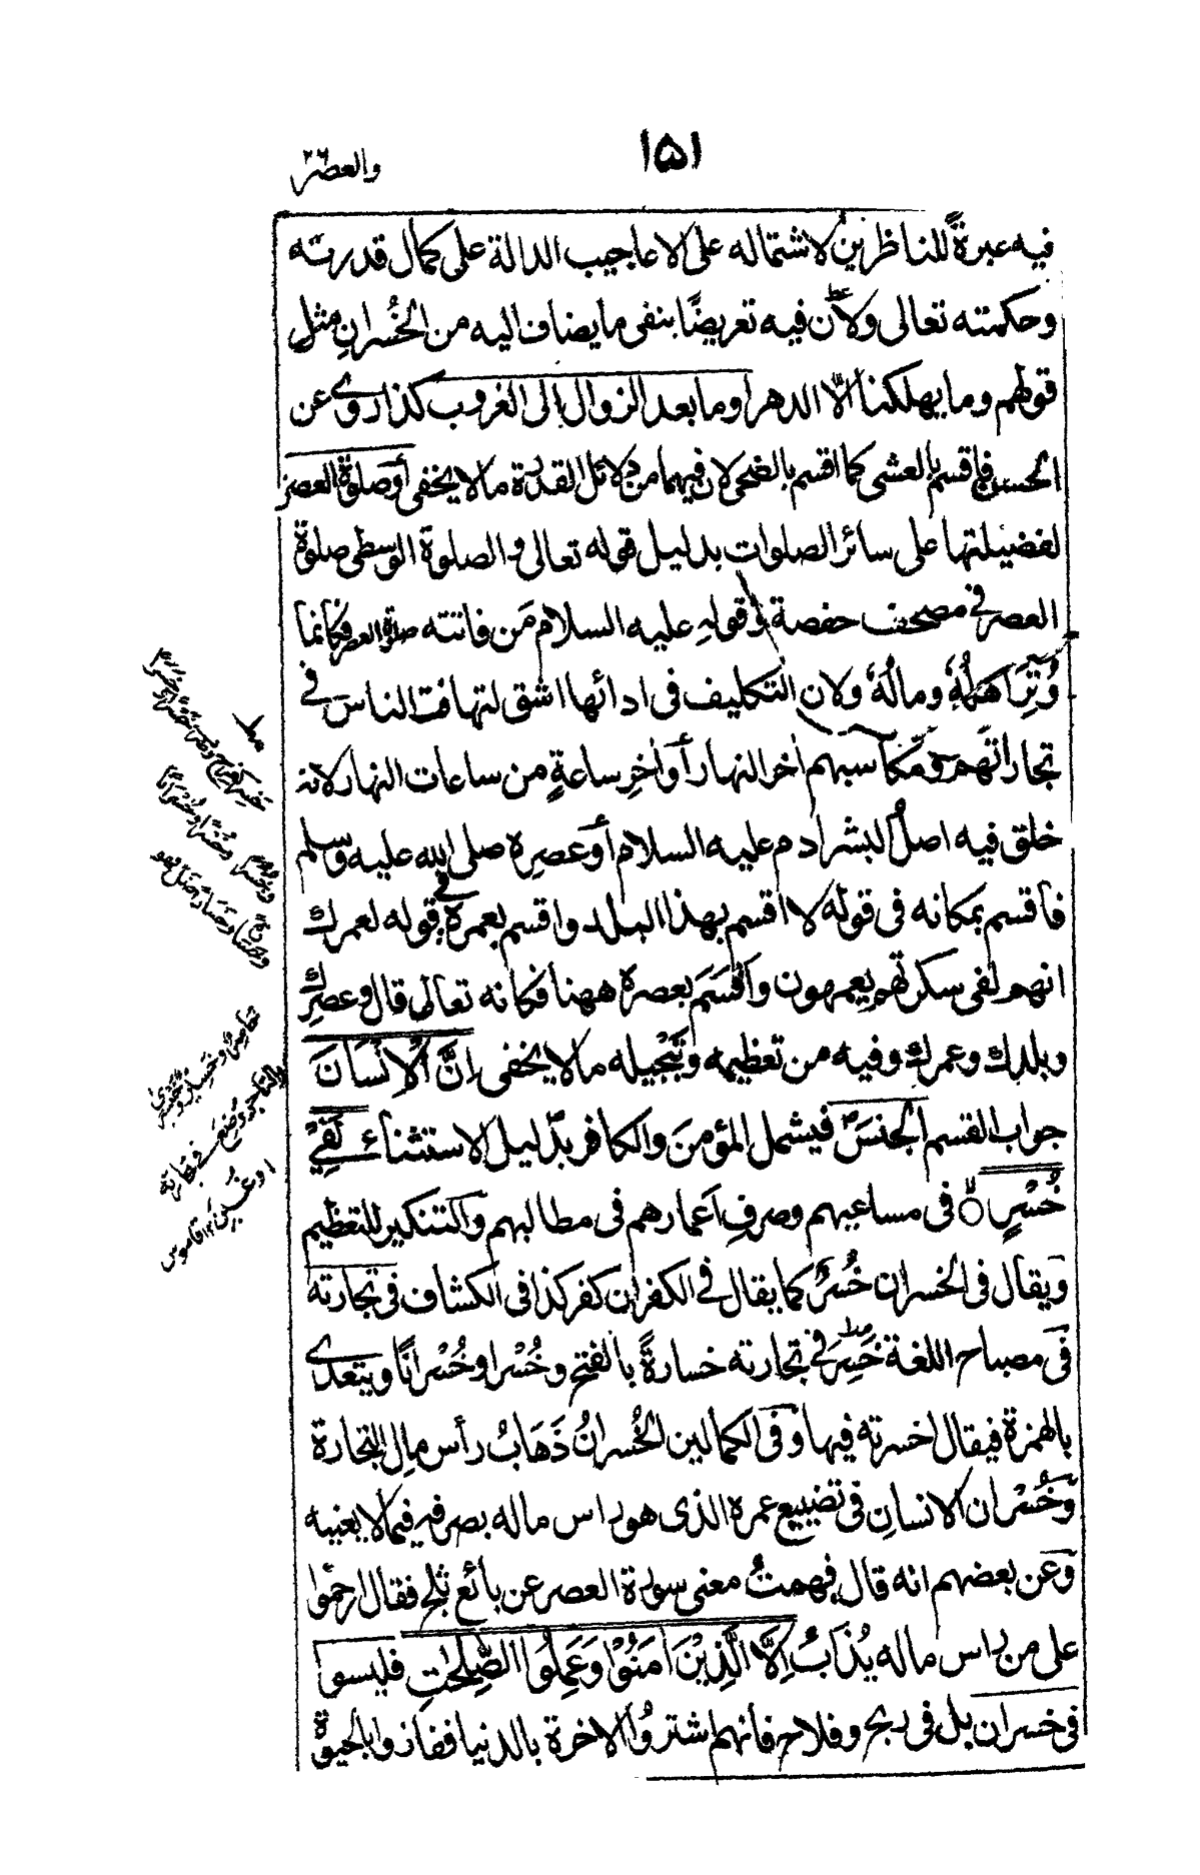 ١٥١
والعصر
فيه عبرةً للناظرين لاشتماله على الاعاجيب الدالة على كمال قدرته
وحكمته تعالى ولان فيه تعريضًا بنفى ما يضاف اليه من الخُسران مثل
قولهم وما يهلكنا الّا الدهر اوما بعد الزوال الى الغروب كذا روى عن
الحسن فاقسم بالعشى كما اقسم بالضحى لان فيهما من دلائل القدرة ما لا يخفى أو صلوة العصر
لفضيلتها على سائر الصلوات بدليل قوله تعالى و الصلوة الوسطى صلوة
العصر فى مصحف حفصة و قولهِ عليه السلام مَن فاتته صلوة العصر فكانما
وُتِرَ اهلُهُ وماله ولان التكليف فى ادائها اشق لتهافت الناس فى
تجاراتهم و مكاسبهم اخر النهار أو اخِر ساعةٍ من ساعات النهار لانه
خلق فيه اصلُ البشر ادم عليه السلام أو عصره صلى الله عليه وسلم
فاقسم بمكانه فى قوله لا اقسم بهذا البلد واقسم بعمره فى قوله لعمرك
انهم لفى سكرتهم يعمهون واَقسَمَ بعصره ههنا فكانه تعالى قال وعصرِك
وبلدك وعمرك وفيه من تعظيمه وتَبجيله ما لا يخفى اِنَّ الْاِنْسَانَ
جواب القسم الجنسَ فيشمل المؤمن والكافر بدليل الاستثناء لَفِيْ
خُسْرٍ فى مساعيهم وصرفِ اعمارهم فى مطالبهم والتنكير للتعظيم
ويقال فى الخسران خُسْرٌ كما يقال فى الكفران كفر كذا فى الكشاف فى تجارته
فى مصباح اللغة خَسِرَ فى تجارته خسارةً بالفتح وخُسْرا وخُسْرانًا ويتعدى
بالهمزة فيقال اخسرته فيها وفى الكمالين الخُسرانُ ذَهَابُ رأس مالِ التجارة
وخُسْران الانسانِ فى تضييع عمره الذى هو راس ماله بصرفه فيما لا يعنيه
وعن بعضهم انه قال فهمتُ معنى سورة العصر عن بائع ثلج فقال ارحموا
على من راس ماله يُذَابُ اِلَّا الَّذِيْنَ اٰمَنُوْا وَعَمِلُوا الصّٰلِحٰتِ فليسوا
فى خسران بل فى ربح وفلاح فانهم اشتروُا الاخرة بالدنيا ففازوا بالحيوة